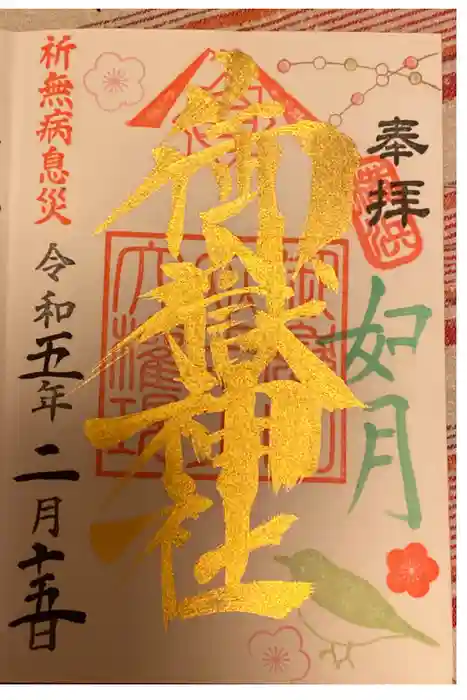 奉拝
如月
御嶽神社
祈無病息災
令和五年二月十五日